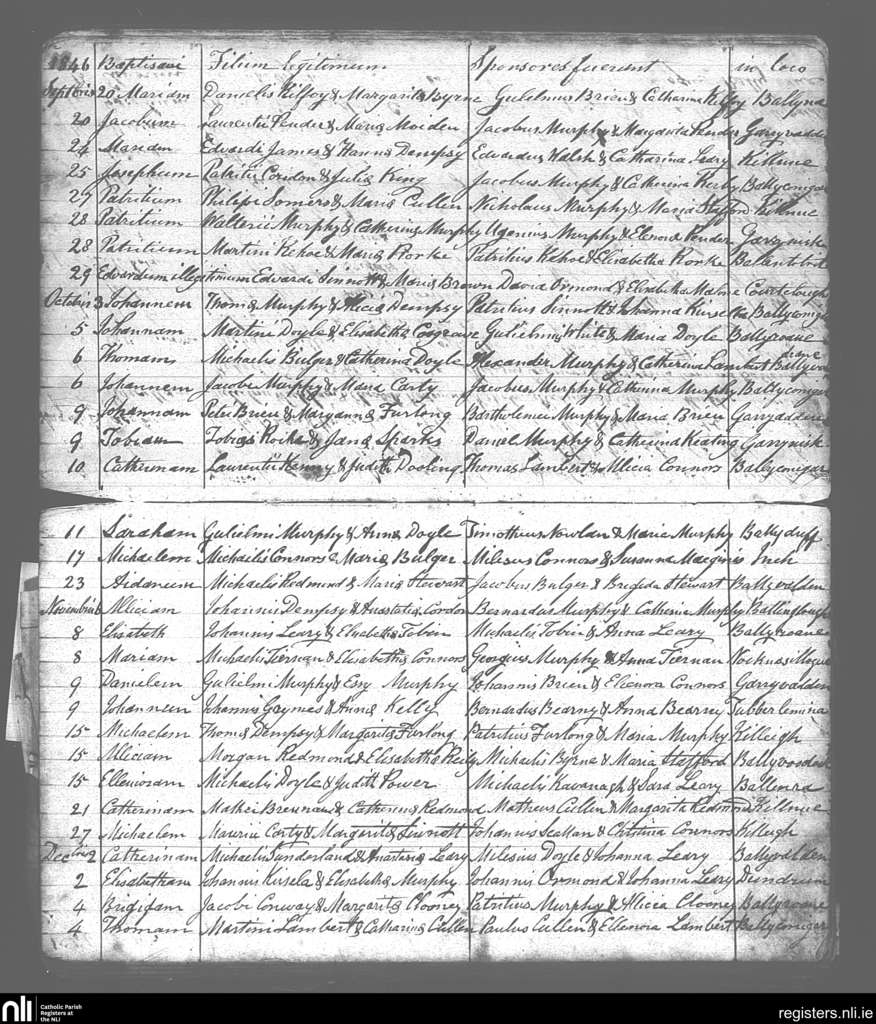 1846 Baptisavi Filium legitimum Sponsores fuerunt in loco
Septbris 20 Mariam Danielis Kilfoy & Margarita Byrne Gulielmus Brien & Catharina Kilfoy Ballyna
20 Jacobum Laurentii Pender & Maria Moiden Jacobus Murphy & Margarita Pender Garyvadde
24 Mariam Edwardi James & Hanna Dempsy Edwardus Walsh & Catharina Leary Killnue
25 Josephum Patritii Condon & Julia King Jacobus Murphy & Catherina Ballyconigar
27 Patritium Philipi Somers & Maria Cullen Nicholaus Murphy & Maria Stafford Killnue
28 Patritium Walterii Murphy & Catherina Murphy Murphy & Elenora Pender Garrynisk
28 Patritium Martini Kehoe & Maria Rorke Patritius Kehoe & Elisabetha Rorke
29 Edwardum illegitimum Edwardi Sinnott & Maria Brown David Ormond & Elisabetha Malone Courtclough
Octobris 3 Johannem Thoma Murphy & Alicia Dempsy Patritius Sinnott & Johanna Kirsela Ballyconigar
5 Johannam Martini Doyle & Elisabetha Cosgrave Gulielmus White & Maria Doyle Ballyroane
6 Thomam Michaelis Bulger & Catherina Doyle Alexander Murphy & Catherina Lambert
6 Johannem Jacobi Murphy & Maria Carty Jacobus Murphy & Catherina Murphy Ballyconigar
9 Johannam Petri Brien & Maryanna Furlong Bartholemeu Murphy & Maria Brien Garryvadden
9 Tobiam Tobias Roche & Jana Sparks Daniel Murphy & Catherina Keating Garrynisk
10 Catherinam Laurentii Kenny & Judith Dooling Thomas Lambert & Allicia Connors Ballyconigar
11 Saraham Gulielmi Murphy & Anna Doyle Timotheus Nowlan & Maria Murphy Ballyduff
17 Michaelem Michaelis Connors & Maria Bulger Milesus Connors & Susanna Inch
23 Aidanum Michaelis Redmond & Maria Stewart Jacobus Bulger & Brigida Stewart Ballyvalden
Novembris 6 Alliciam Johannis Dempsy & Anastatia Cordon Bernardus Murphy & Catherine Murphy
8 Elisabeth Johannis Leary & Elisabetha Tobin Michaelis Tobin & Anna Leary Ballyroane
8 Mariam Michaelis Tiernan & Elisabetha Connors Georgius Murphy & Anna Tiernan
9 Danielem Gulielmi Murphy & Essy Murphy Johannis Brien & Elienora Connors Garryvadden
9 Johannem Johannis Grymes & Anna Kelly Bernardus Bearny & Anna Bearney Tubberlemina
15 Michaelem Thoma Dempsy & Margarita Furlong Patritius Furlong & Maria Murphy Killeigh
15 Alliciam Morgan Redmond & Elisabetha Reily Michaelis Byrne & Maria Stafford
15 Ellenoram Michaelis Doyle & Judith Power Michaelis Kavanagh & Sara Leary Ballenra
21 Catherinam Mathei Brennan & Catherina Redmond Matheus Cullen & Margarita Redmond Killnue
27 Michaelem Mauritii Carty & Margarita Sinnott Johannis & Christina Connors Killeigh
Decbris 2 Catherinam Michaelis Sunderland & Anastatia Leary Milesius Doyle & Johanna Leary Ballyvalden
2 Elisabetham Johannis Kirsela & Elisabetha Murphy Johannis Ormond & Johanna Leary Dundrum
4 Brigidam Jacobi Conway & Margarita Clooney Patritius Murphy & Allicia Clooney Ballyroane
4 Thomam Martini Lambert & Catharina Cullen Paulus Cullen & Ellenora Lambert Ballyconigar
nli Catholic Parish Registers at the NLI registers.nli.ie